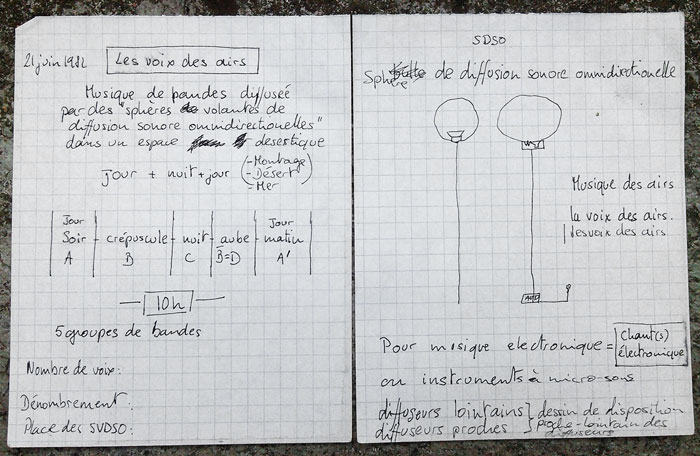 21 juin 1982
Les voix des airs
Musique de bandes diffuseé
par des "sphères de volantes de
diffusion sonore omnidirectionelles"
dans un espace desertique
jour + nuit + jour
- Montagne
- Désert
- Mer
Jour Jour
Soir - crépuscule - nuit - aube - matin
A B C B̄=D A'
10h
5 groupes de bandes
Nombre de voix :
Dénombrement :
Place des SVDSO :
SDSO
Sphère de diffusion sonore omnidirectionelle
Musique des airs
la voix des airs.
les voix des airs
Pour musique electronique = Chant(s)
électronique
ou instruments à micro-sons
diffuseurs lointains } dessin de disposition
diffuseurs proches } proche-lointain des
diffuseurs